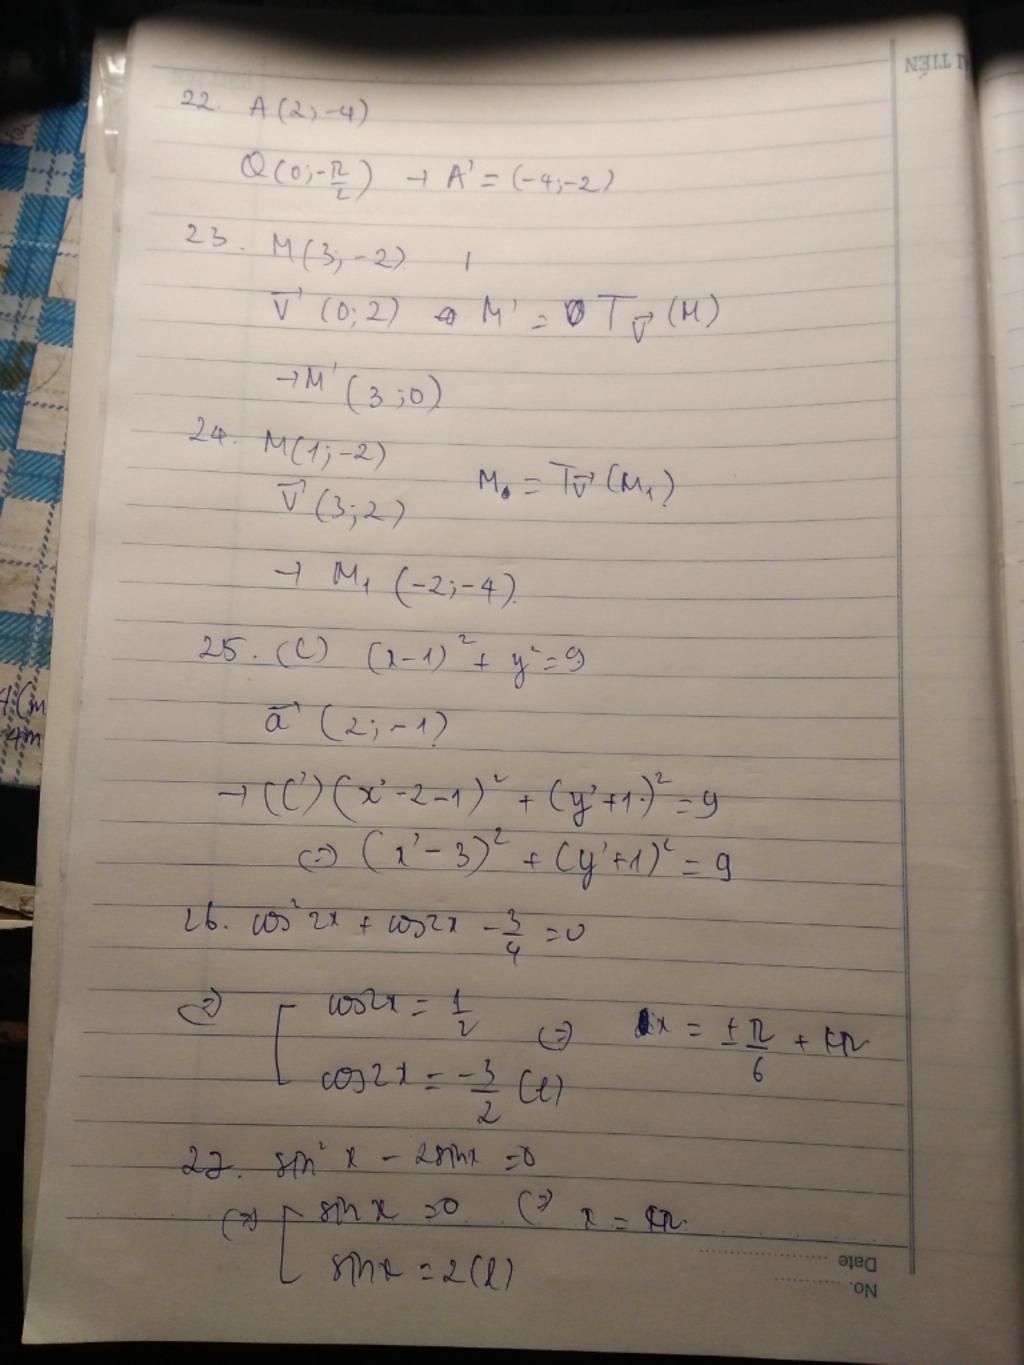 22. A(2;-4)
Q(0;-π/2) → A' = (-4;-2)
23. M(3;-2)
v⃗ (0;2) M' = T v⃗ (M)
→ M' (3;0)
24. M(1;-2)
v⃗ (3;2) M = T v⃗ (M₁)
→ M₁ (-2;-4).
25. (C) (x-1)² + y² = 9
a⃗ (2;-1)
→ (C') (x'-2-1)² + (y'+1)² = 9
(=) (x'-3)² + (y'+1)² = 9
26. cos²2x + cos2x - 3/4 = 0
(=) [ cos2x = 1/2 (=) x = ±π/6 + kπ
cos2x = -3/2 (l)
27. sin²x - 2sinx = 0
(=) [ sinx = 0 (=) x = kπ.
sinx = 2 (l)
TIẾN
Date
No.